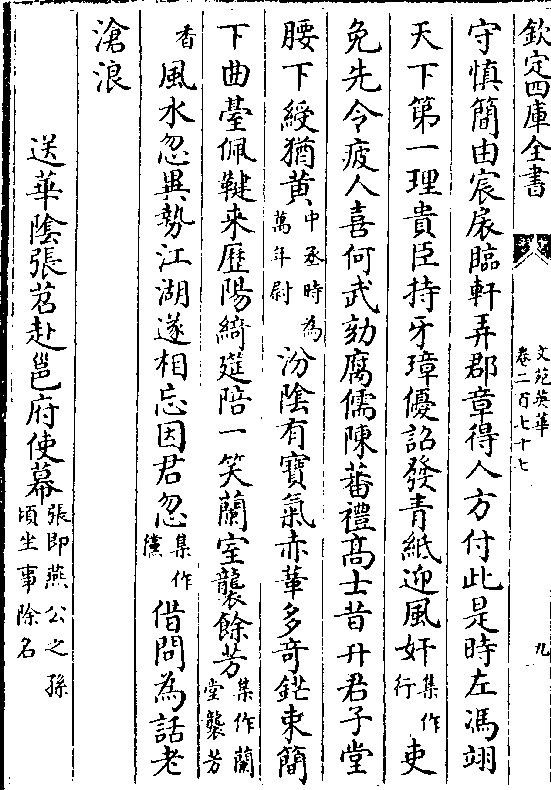 欽定四庫全書
文苑英華
卷二百七十七
九
守慎簡由宸扆臨軒弄郡章得人方付此是時左馮翊
天下第一理貴臣持牙璋優詔發青紙迎風奸集作行吏
免先令疲人喜何武劾腐儒陳蕃禮高士昔升君子堂
腰下綬猶黄中丞時為萬年尉汾隂有寳氣赤華多竒鋩束簡
下曲臺佩鞬来歴陽綺筵陪一笑蘭室襲餘芳集作蘭堂襲芳
香風水忽異勢江湖遂相忘因君忽集作儻借問為話老
滄浪
送華隂張苕赴邕府使幕張即燕公之孫頃坐事除名